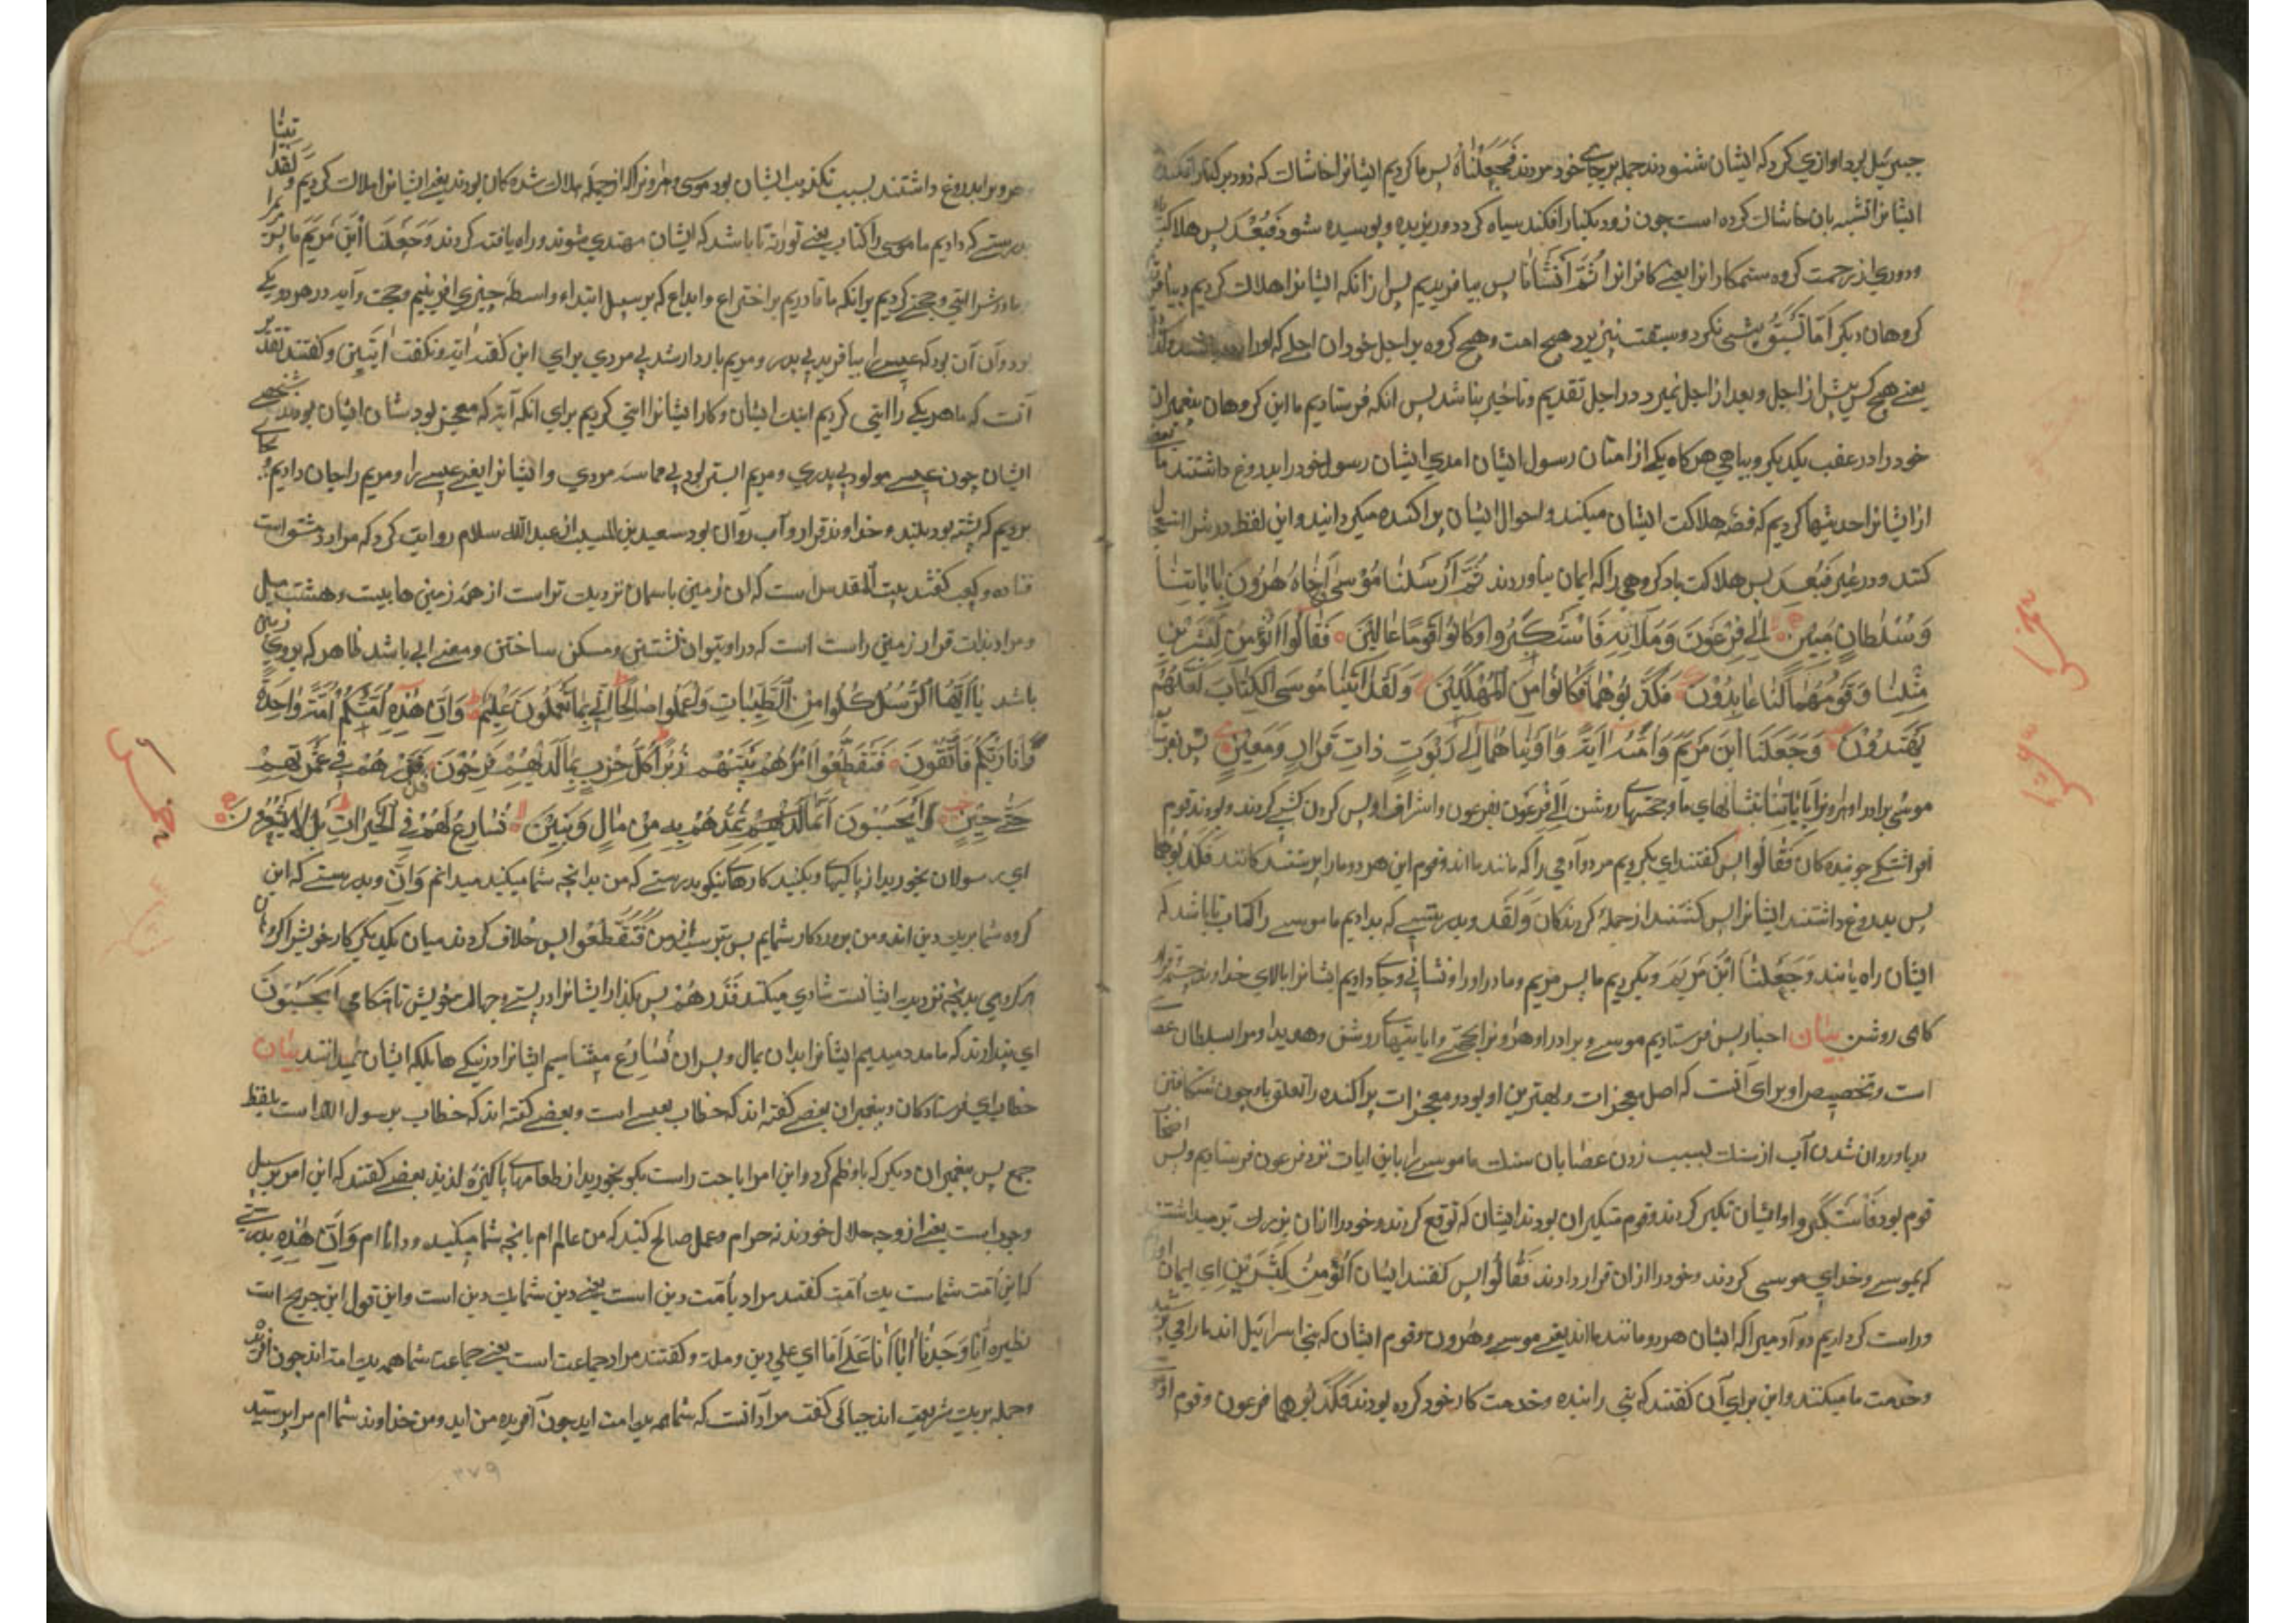 جبرئیل برد اوازی کرد که ایشان شنودند جمله بر جای خود مردند فَجَعَلْنَاهُ پس ما کردیم ایشانرا خاشاک که رود بر کنار افکند
ایشانرا تشبیه بان خاشاک کرده است چون رود بکنار افکند سیاه کردد و پوسیده شود فَبُعْدَ پس هلاکت
و دوری از رحمت کروه ستمکارانرا یعنی کافرانرا ثُمَّ اَنْشَأْنَا پس بیافریدیم پس از انکه ایشانرا هلاک کردیم
کروهان دیکر نکرد و سبقت هیچ امت و هیچ کروه بر اجل خود ان اجلی که اورا
یعنی هیچ کس پیش از اجل و بعد از اجل نمیرد و در اجل تقدیم و تاخیر نباشد پس انکه فرستادیم ما این کروهان پیغمبران
خود را در عقب یکدیکر و پیاپی هر کاه یکی از امتان رسول ایشان امدی ایشان رسول خود را بدروغ داشتند
از ایشانرا حدیثها کردیم که قصه هلاکت ایشان میکنند و احوال ایشان پراکنده میکردانند و این لفظ در شر استعمال
کنند و در غیر فَبُعْدَ پس هلاکت باد کروهی را که ایمان نیاوردند ثُمَّ اَرْسَلْنَا مُوْسٰی اَخَاهُ هٰرُونَ بِاٰیَاتِنَا
وَسُلْطَانٍ مُبِیْنٍ اِلٰی فِرْعَوْنَ وَمَلَائِهِ فَاسْتَکْبَرُوا وَکَانُوا قَوْمًا عَالِیْنَ فَقَالُوا اَنُؤْمِنُ لِبَشَرَیْنِ
مِثْلِنَا وَقَوْمُهُمَا لَنَا عَابِدُوْنَ فَکَذَّبُوْهُمَا فَکَانُوا مِنَ الْمُهْلَکِیْنَ وَلَقَدْ اٰتَیْنَا مُوسَی الْکِتَابَ لَعَلَّهُمْ
یَهْتَدُوْنَ وَجَعَلْنَا ابْنَ مَرْیَمَ وَاُمَّهُ اٰیَةً وَاٰوَیْنَاهُمَا اِلٰی رَبْوَةٍ ذَاتِ قَرَارٍ وَمَعِیْنٍ پس
موسی برادر او هرونرا بِاٰیَاتِنَا نشانهای ما و حجتهای روشن اِلٰی فِرْعَوْنَ بفرعون و اشراف او پس کردن کشی کردند و بودند قوم
جوینده کان فَقَالُوا پس کفتند ای بکرویم مر دو آدمی را که مانند ما اند و قوم این هر دو ما را پرستند کانند فَکَذَّبُوْهُمَا
پس بدروغ داشتند ایشانرا پس کشتند از جمله کردندکان وَلَقَدْ و بدرستی که بدادیم ما موسی را کتاب تا باشد که
ایشان راه یابند وَجَعَلْنَا ابْنَ مَرْیَمَ و بکردیم ما پس مریم و مادر او را نشانی و جا دادیم ایشانرا بالای خداوند
کاهی روشن بیان اخبار پس فرستادیم موسی و برادر او هرونرا بحجتی و ایاتیهای روشن و هویدا و مراد بسلطان عصا
است و تخصیص او برای آنست که اصل معجزات و بهترین او بود و معجزات پراکنده را تعلق باو چون شکافتن
دریا و روان شدن آب از سنک بسبب زدن عصا بان سنک ما موسی را باین ایات نزد فرعون فرستادیم و پس
قوم بود فَاسْتَکْبَرُوا و ایشان تکبر کردند و قوم متکبران بودند ایشان که توقع کردند و خود را ازان بزرک تر میداشتند
که بموسی و خدای موسی کروند و خود را ازان قرار دادند فَقَالُوا پس کفتند ایشان اَنُؤْمِنُ لِبَشَرَیْنِ ای ایمان
و راست کرداریم دو آدمیرا که ایشان هر دو مانند ما اند یعنی موسی و هرون و قوم ایشان که بنی اسرائیل اند ما را می پرستند
و خدمت ما میکنند و این برای آن کفتند که بنی را بنده و خدمت کار خود کرده بودند فَکَذَّبُوْهُمَا فرعون و قوم او
بدروغ داشتند بسبب تکذیب ایشان بود موسی و هرونرا که از جمله هلاک شده کان بودند یعنی ایشانرا هلاک کردیم وَلَقَدْ اٰتَیْنَا
بدرستی که دادیم ما موسی را کتاب یعنی توراة تا باشد که ایشان مهتدی شوند و راه یافته کردند وَجَعَلْنَا ابْنَ مَرْیَمَ ما پس مریم را
و مادرش را آیتی و حجتی کردیم بر انکه ما قادریم بر اختراع و ابداع که بر سبیل ابتداء و واسطه چیزی افرینیم و حجت و آیه در هر دو یکی
بود و آن آن بود که عیسی را بیافرید بی پدر و مریم باردار شد بی مردی برای این کفت اٰیَة و نکفت اٰیَتَیْنِ و کفتند تقدیر
آنست که ما هر یکی را آیتی کردیم ایشان و کار ایشانرا آیتی کردیم برای انکه آیه که معجز بود شان ایشان بود نه شخص
ایشان چون عیسی مولود بی پدری و مریم ابستن بود بی مماسه مردی و ایشانرا یعنی عیسی را و مریم را جان دادیم
بردیم که پشته بود بلند و خداوند قرار و آب روان بود سعید بن المسیب از عبدالله سلام روایت کرد که مراد دمشق است
قتاده و کعب کفتند بیت المقدس است که ان زمین باسمان نزدیک تر است از همه زمین ها بیست و هشت میل
و مراد بذات قرار زمینی راست است که در او بتوان نشستن و مسکن ساختن و معین ابی باشد ظاهر که بر روی زمین
باشد یٰاَیُّهَا الرُّسُلُ کُلُوا مِنَ الطَّیِّبَاتِ وَاعْمَلُوا صَالِحًا اِنِّی بِمَا تَعْمَلُونَ عَلِیْمٌ وَاَنَّ هٰذِهِ اُمَّتُکُمْ اُمَّةً وَاحِدَةً
وَاَنَا رَبُّکُمْ فَاتَّقُونِ فَتَقَطَّعُوا اَمْرَهُمْ بَیْنَهُمْ زُبُرًا کُلُّ حِزْبٍ بِمَا لَدَیْهِمْ فَرِحُوْنَ فَذَرْهُمْ فِی غَمْرَتِهِمْ
حَتّٰی حِیْنٍ اَیَحْسَبُوْنَ اَنَّمَا نُمِدُّهُمْ بِهِ مِنْ مَالٍ وَبَنِیْنَ نُسَارِعُ لَهُمْ فِی الْخَیْرَاتِ بَلْ لَا یَشْعُرُونَ
ای رسولان بخورید از پاکیها و بکنید کارهای نیکو بدرستی که من بدانچه شما میکنید میدانم وَاَنَّ و بدرستی که این
کروه شما بریک دین اند و من پروردکار شمایم پس بترسید از من فَتَقَطَّعُوا پس خلاف کردند میان یکدیکر کار خویش را کروهان
هر کروهی بدنچه نزدیک ایشانست شادی میکنند فَذَرْهُمْ پس بکذار ایشانرا در پستی و جهالت خویش تا هنکامی اَیَحْسَبُوْنَ
ای پندارند که ما مدد میدهیم ایشانرا بدان بمال و پسران نُسَارِعُ میشتابیم ایشانرا در نیکی ها بلکه ایشان نمیدانند بیان
خطاب ای فرستادکان و پیغمبران بعضی کفته اند که خطاب بعیسی است و بعضی کفته اند که خطاب برسول الله است بلفظ
جمع پس پیغمبران دیکر که باو نظم کرد و این امر اباحت راست بکو بخورید از طعامهای پاکیزه لذیذ بعضی کفتند که این امر بر سبیل
وجوبست یعنی از وجه حلال خورند نه حرام و عمل صالح کنید که من عالم ام بانچه شما میکنید و دانا ام وَاَنَّ هٰذِهِ بدرستی
که این اُمّت شماست یک اُمّت کفتند مراد باُمت دین است یعنی دین شما یک دین است و این قول ابن جریح است
نظیره اِنَّا وَجَدْنَا اٰبَاءَنَا عَلٰی اُمَّةٍ ای علی دین و ملة و کفتند مراد جماعت است یعنی جماعت شما همه یک امت اند چون
و جمله بریک شریعت اند جبائی کفت مراد آنست که شما همه یک امت اید چون آفریده من اید و من خداوند شما ام مرا پرستید
۳۷۹